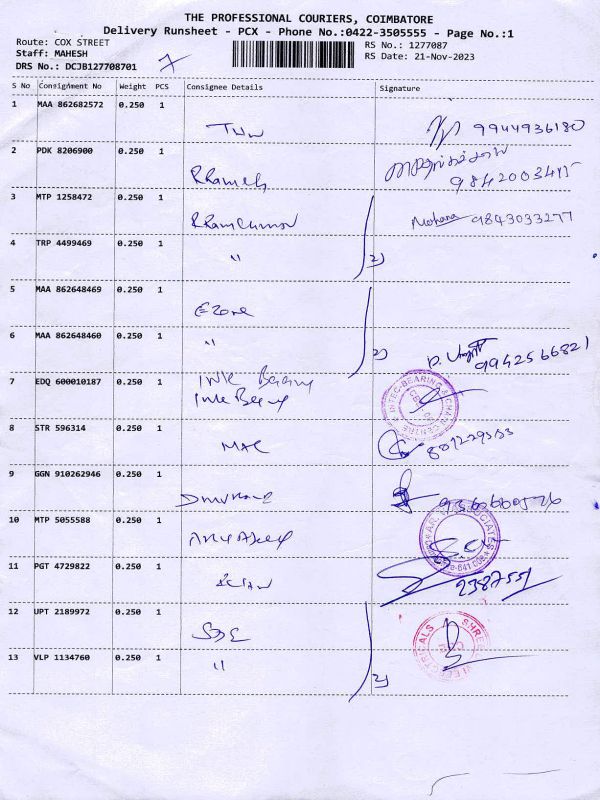 THE PROFESSIONAL COURIERS, COIMBATORE
Delivery Runsheet - PCX - Phone No.:0422-3505555 - Page No.:1
Route: COX STREET
RS No.: 1277087
Staff: MAHESH
RS Date: 21-Nov-2023
DRS No.: DCJB127708701 7
S No Consignment No Weight PCS Consignee Details Signature
1 MAA 862682572 0.250 1
9944936180
2 PDK 8206900 0.250 1
3 MTP 1258472 0.250 1
Mohana 9843033277
4 TRP 4499469 0.250 1
" 2)
5 MAA 862648469 0.250 1
Ezone
6 MAA 862648460 0.250 1
" 2) 9942566821
7 EDQ 600010187 0.250 1
INTEC-BEARING & CHAIN CENTRE
8 STR 596314 0.250 1
MAC
9 GGN 910262946 0.250 1
10 MTP 5055588 0.250 1
11 PGT 4729822 0.250 1
2387551
12 UPT 2189972 0.250 1
SHREE
13 VLP 1134760 0.250 1
" 2)